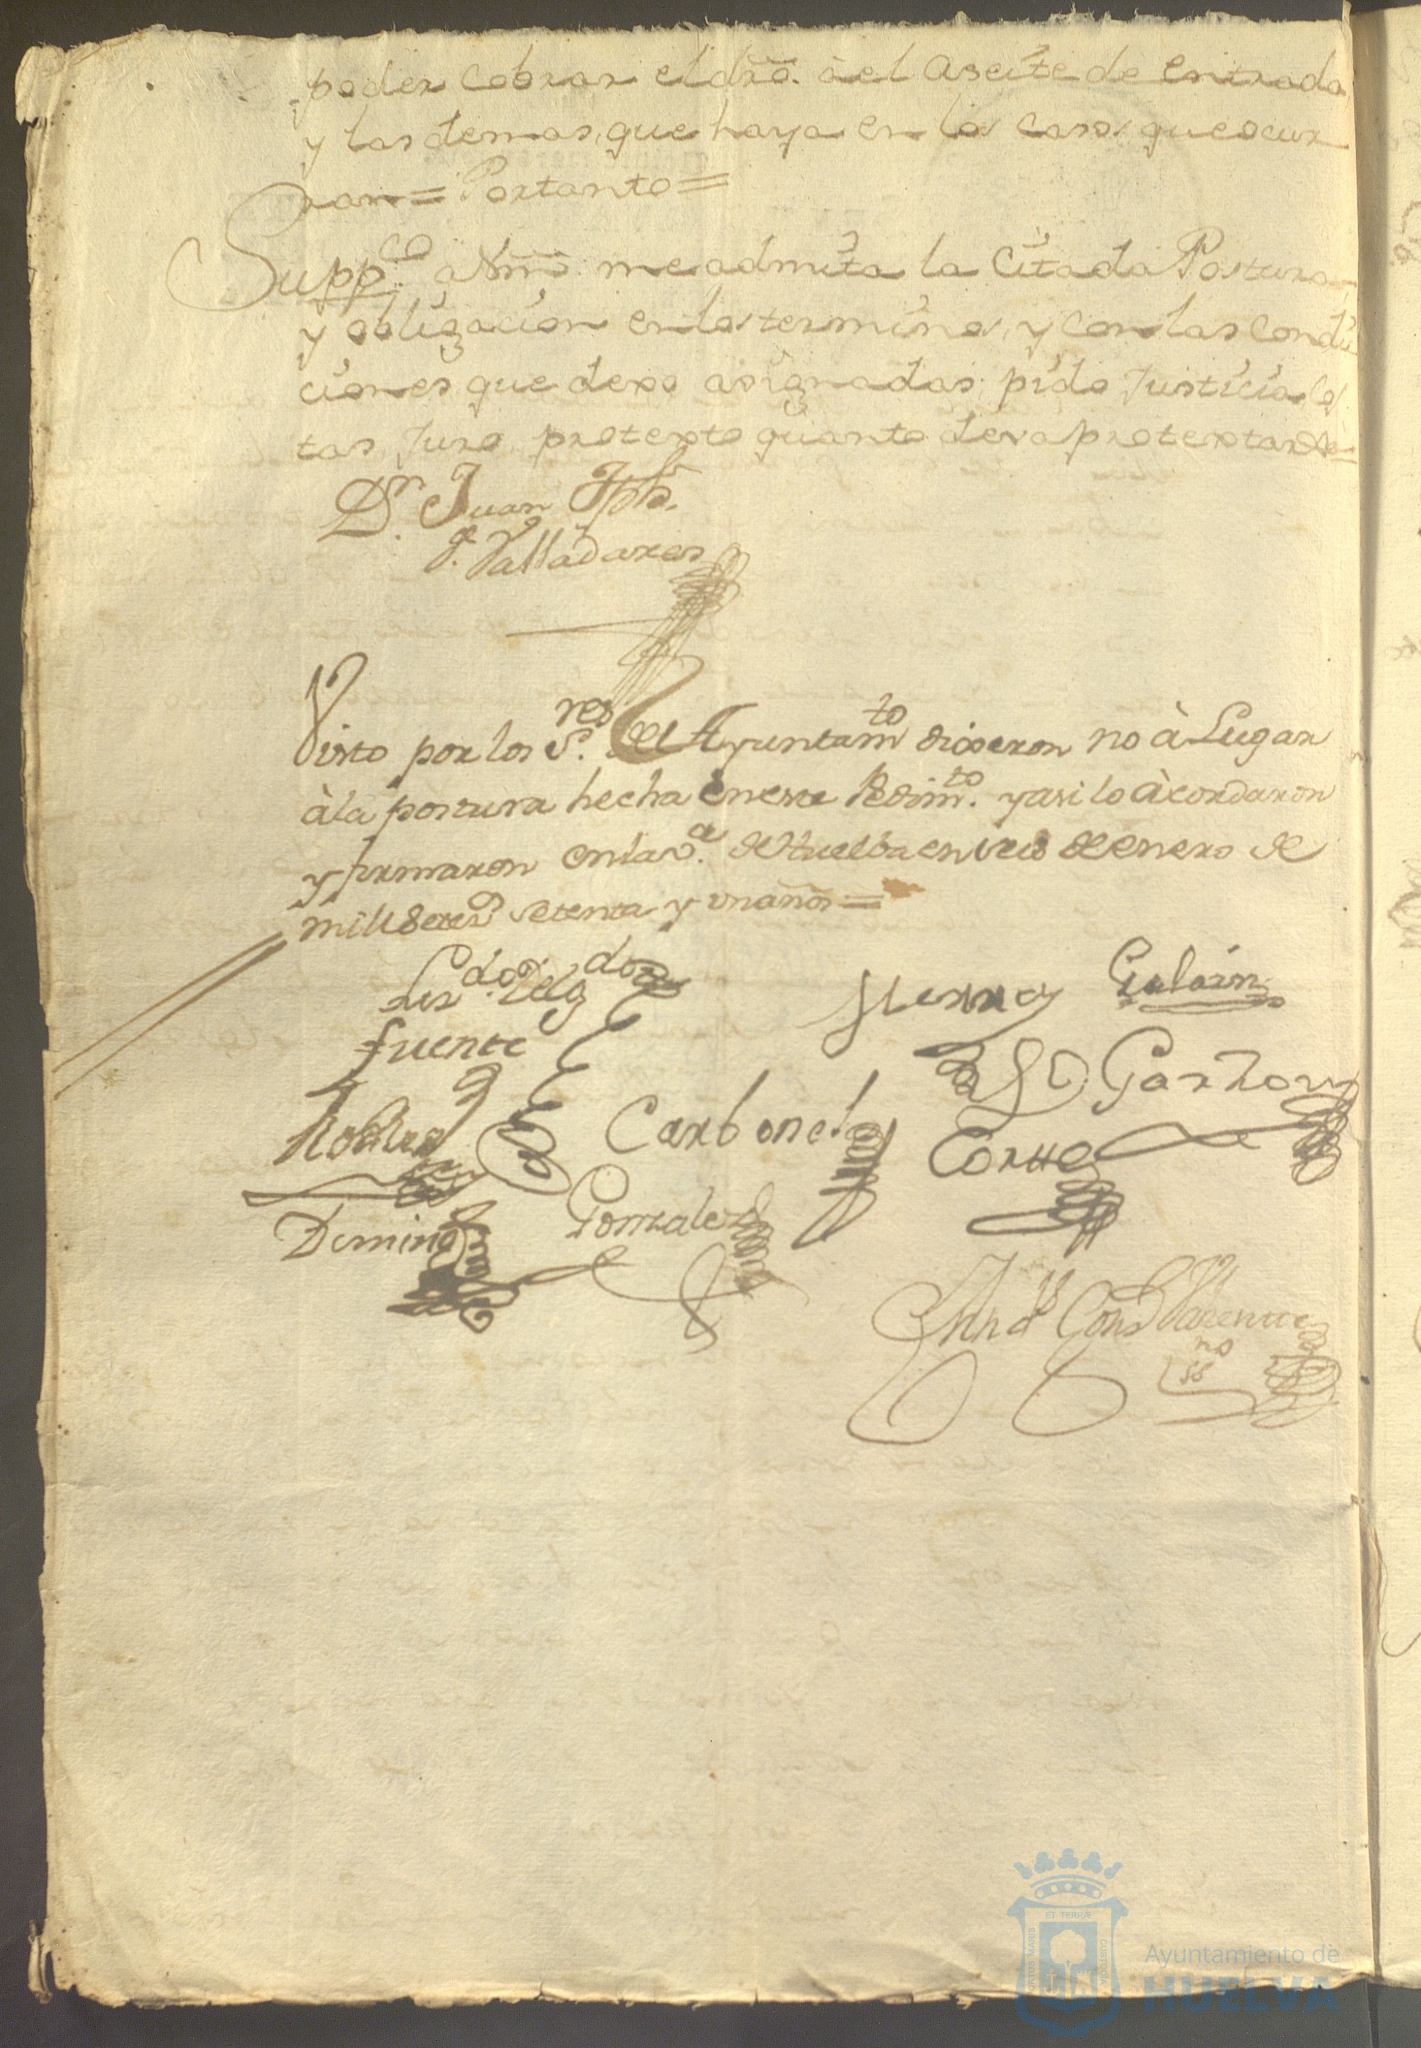 poder cobrar el dro. à el Aseite de entrada
y las demas, que haya en los casos que ocur
ran = Portanto =
Suppco. a Vm. me admita la citada Postura
y obligacion en los terminos, y con las condi
ciones que dexo asignadas; pido Justicia Cos
tas, Juro protexto quanto deva protextar
Dn. Juan Jph.
Valladares
Visto por los Sres. del Ayuntamto dixeron no à Lugar
à la postura hecha en este Pedimto. y asi lo àcordaron
y firmaron en la va. de Huelba en seis de enero de
mill setezs setenta y un años =
Lizdo. Delgdo
Hierro Galvin
fuente
Garzon
Robles
Carbonel
Domino
Gonzalez
Ands Cons Vizente
sno
ET TERRÆ
PORTUS MARIS
CUSTODIA
Ayuntamiento de
HUELVA